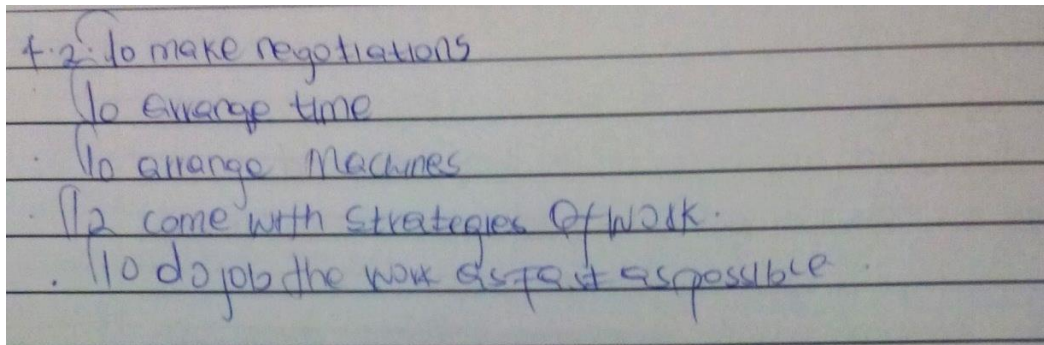 4.2. To make negotiations
To arrange time
· To arrange Machines
· To come with strategies of work.
· To do job the work as fast as possible.